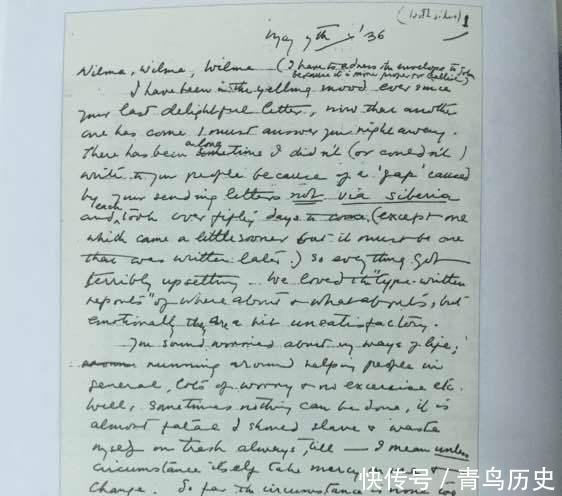 (both sides) 1
May 7th '36
Wilma, Wilma, Wilma (I have to adress the envelope to John
because it's more proper or called)
I have been in the yelling mood ever since
your last delightful letter, now that another
one has come I must answer you right away.
There has been a long sometime I didn't (or couldn't)
write to you people because of a 'gap' caused
by your sending letters not via Siberia
and each took over fifty days to come, (except one
which came a little sooner but it must be one
that was written later.) So everything got
terribly upsetting. We loved the "type-written
reports" of where abouts or what abouts, but
emotionally they are a bit unsatisfactory.
You sound worried about my ways of life;
running around helping people in
general, lots of worry & no excercise etc.
Well, sometimes nothing can be done, it is
almost fatal I should slave & waste
myself on trash always, till — I mean unless
circumstance itself take mercy
change. So far the circumstance
快传号 / 青鸟历史